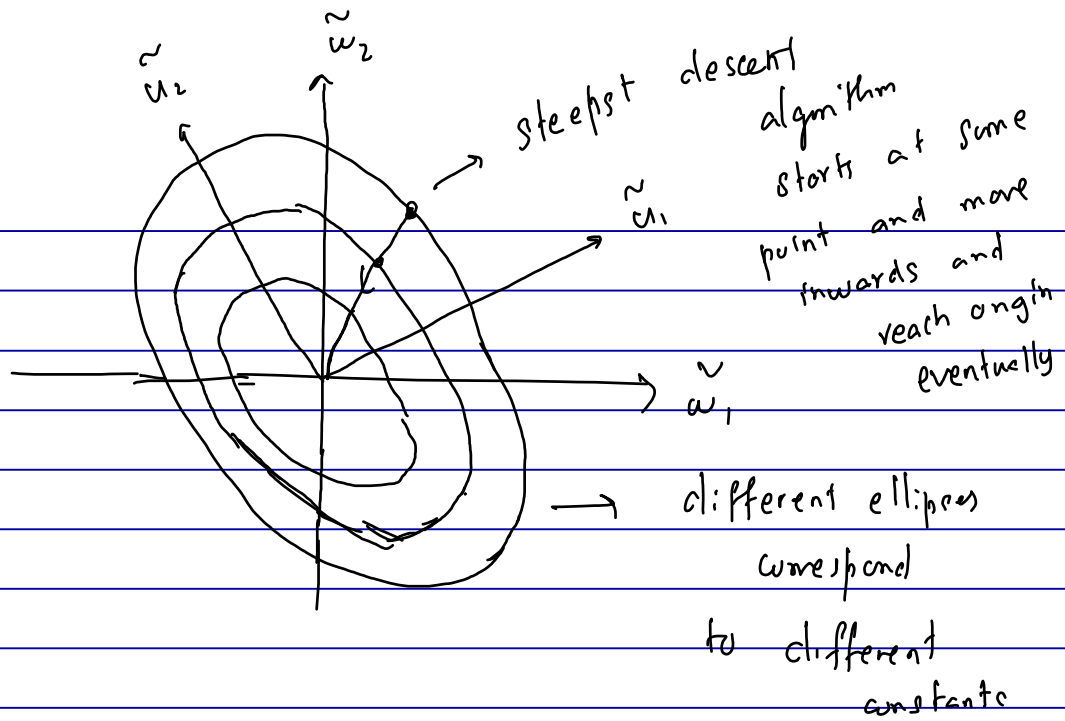 ũ₂
w̃₂
steepst descent
algorithm
starts at some
point and move
inwards and
reach origin
eventually
ũ₁
w̃₁
different ellipses
correspond
to different
constants